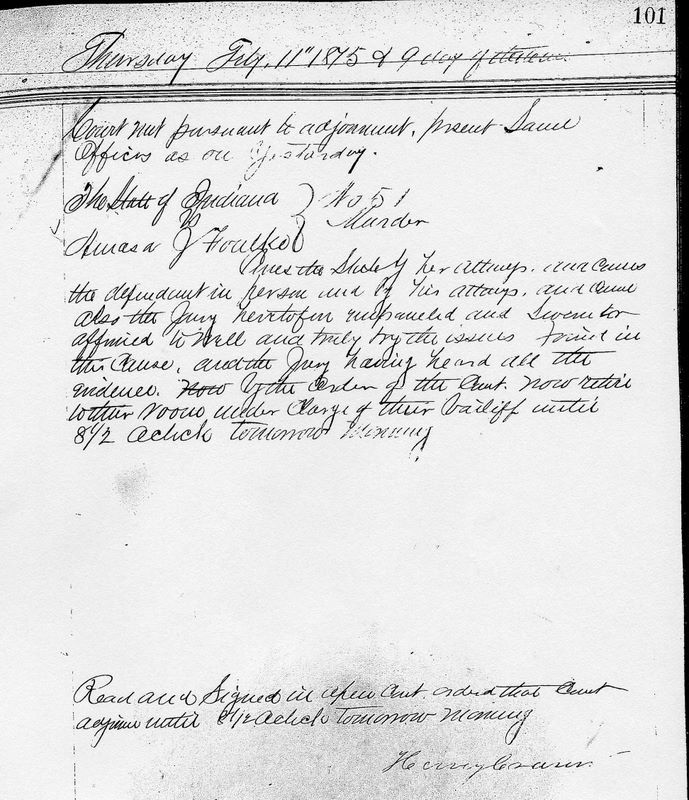 101
Thursday Feby, 11" 1875 & 9 day of
Court met pursuant to adjornment, present Same
Officers as on yesterday.
The State of Indiana } No 51
vs } Murder
Amasa J Foulke }
the State by her attorneys. and comes
the defendant in person and by his attorneys, and come
also the Jury heretofore empaneled and sworn or
affirmed to well and truly try the issues Joined in
this Cause, and the Jury having heard all the
evidence. Now by the Order of the Court. now retire
to their room under Charge of their bailiff until
8½ Oclock tomorrow morning
Read and Signed in open Court ordered that Court
adjourn until 8½ Oclock tomorrow morning
Henry